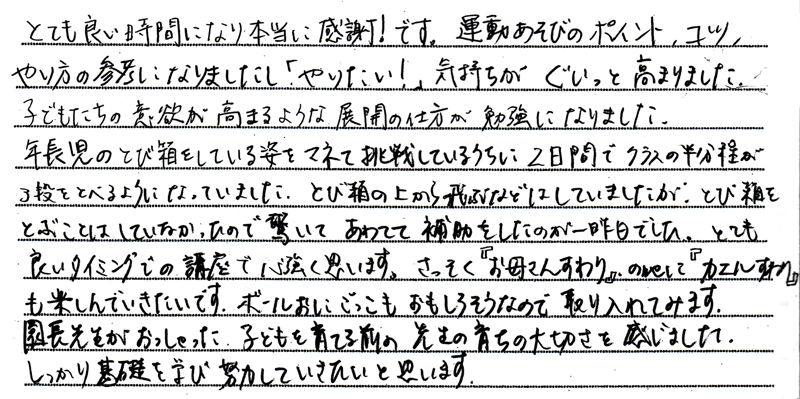 とても良い時間になり本当に感謝!です。運動あそびのポイント、コツ、
やり方の参考になりましたし「やりたい!」気持ちがぐいっと高まりました。
子どもたちの意欲が高まるような展開の仕方が勉強になりました。
年長児のとび箱をしている姿をマネて挑戦しているうちに2日間でクラスの半分程が
3段をとべるようになっていました。とび箱の上から飛ぶなどはしていましたが、とび箱を
とぶことはしていなかったので驚いてあわてて補助をしたのが一昨日でした。とても
良いタイミングでの講座で心強く思います。さっそく『お母さんすわり』、そして『カエルすわり』
も楽しんでいきたいです。ボールおにごっこもおもしろそうなので取り入れてみます。
園長先生がおっしゃった子どもを育てる前の先生の育ちの大切さを感じました。
しっかり基礎を学び努力していきたいと思います。